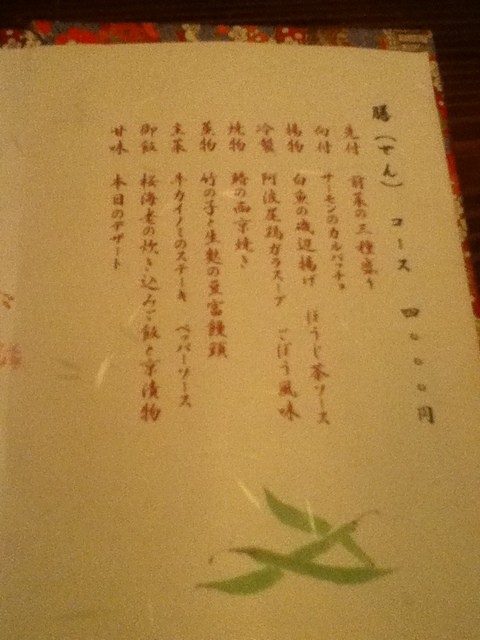 膳（せん）　コース　四〇〇〇円
先付　前菜の三種盛り
向付　サーモンのカルパッチョ
揚物　白魚の磯辺揚げ　ほうじ茶ソース
冷製　阿波尾鶏ガラスープ　ごぼう風味
焼物　鰆の西京焼き
蒸物　竹の子と生麩の豆富饅頭
主菜　牛カイノミのステーキ　ペッパーソース
御飯　桜海老の炊き込みご飯と京漬物
甘味　本日のデザート